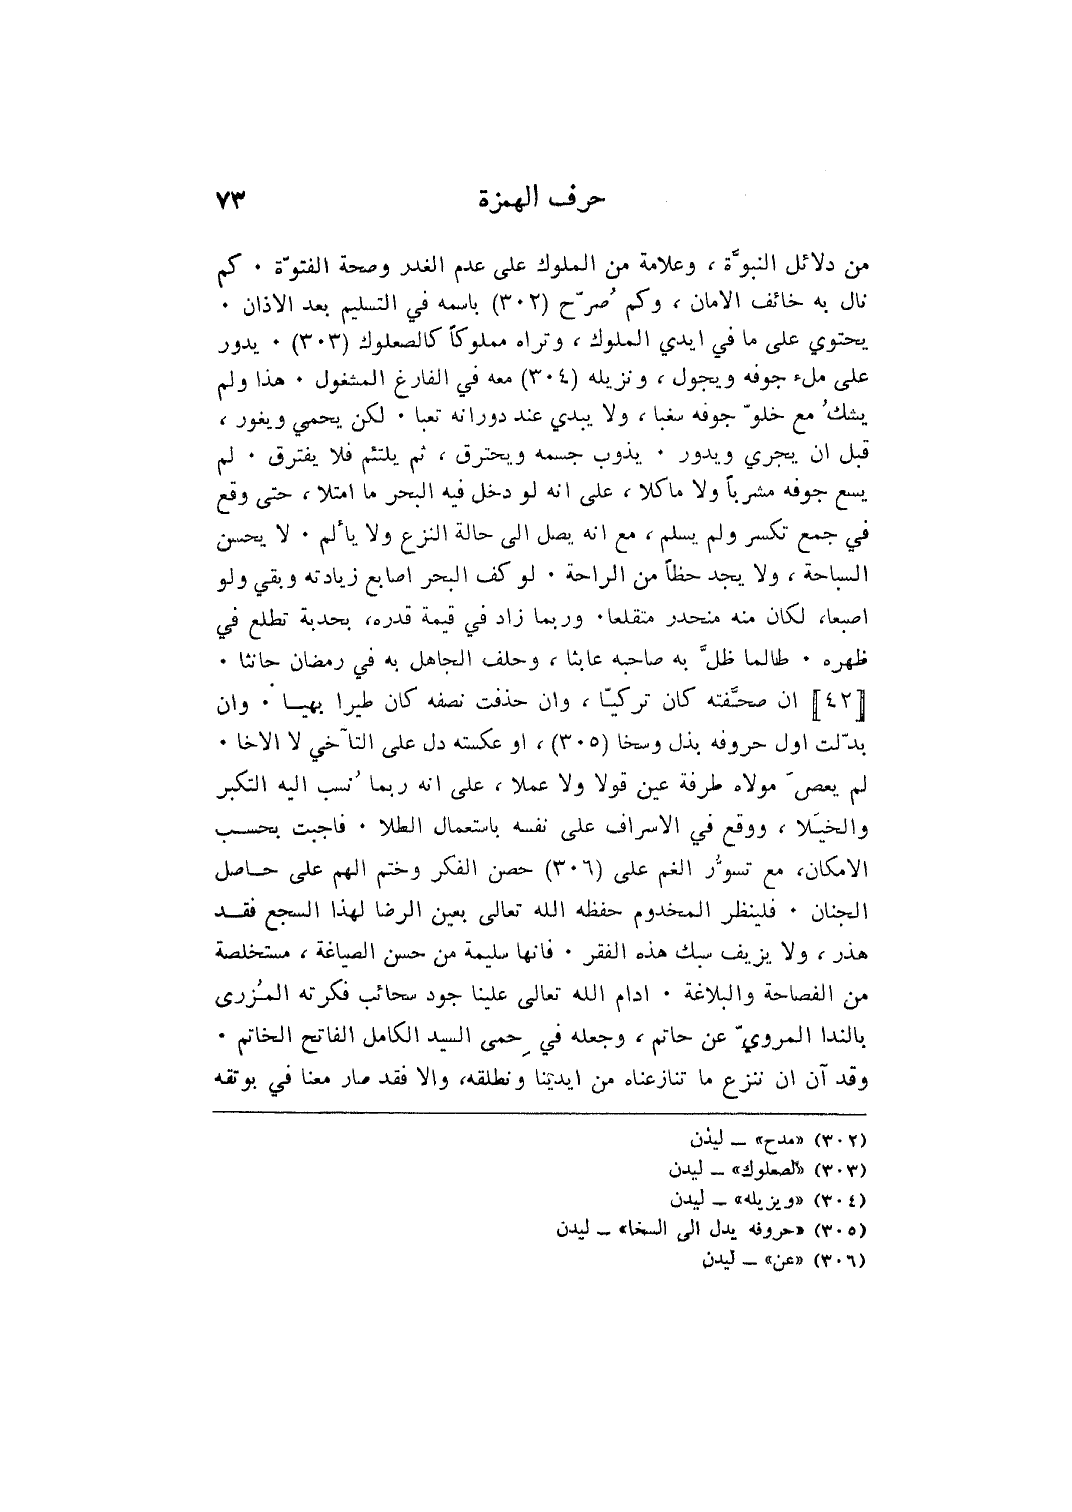 حرف الهمزة ٧٣
من دلائل النبوَّة ، وعلامة من الملوك على عدم الغدر وصحة الفتوّة ٠ كم
نال به خائف الامان ، وكم ُصرّح (٣٠٢) باسمه في التسليم بعد الاذان ٠
يحتوي على ما في ايدي الملوك ، وتراه مملوكاً كالصعلوك (٣٠٣) ٠ يدور
على ملء جوفه ويجول ، ونزيله (٣٠٤) معه في الفارغ المشغول ٠ هذا ولم
يشكُ مع خلوّ جوفه سغبا ، ولا يبدي عند دورانه تعبا ٠ لكن يحمي ويغور ،
قبل ان يجري ويدور ٠ يذوب جسمه ويحترق ، ثم يلتئم فلا يفترق ٠ لم
يسع جوفه مشرباً ولا ماكلا ، على انه لو دخل فيه البحر ما امتلا ، حتى وقع
في جمع تكسر ولم يسلم ، مع انه يصل الى حالة النزع ولا يألم ٠ لا يحسن
السباحة ، ولا يجد حظاً من الراحة ٠ لو كف البحر اصابع زيادته وبقي ولو
اصبعا، لكان منه منحدر متقلعا٠ وربما زاد في قيمة قدره، بحدبة تطلع في
ظهره ٠ طالما ظلَّ به صاحبه عابثا ، وحلف الجاهل به في رمضان حانثا ٠
[٤٢] ان صحَّفته كان تركيّا ، وان حذفت نصفه كان طيرا بهيا ٠ وان
بدّلت اول حروفه بذل وسخا (٣٠٥) ، او عكسته دل على التآخي لا الاخا ٠
لم يعصَ مولاه طرفة عين قولا ولا عملا ، على انه ربما ُنسب اليه التكبر
والخيَلا ، ووقع في الاسراف على نفسه باستعمال الطلا ٠ فاجبت بحسب
الامكان، مع تسوُّر الغم على (٣٠٦) حصن الفكر وختم الهم على حاصل
الجنان ٠ فلينظر المخدوم حفظه الله تعالى بعين الرضا لهذا السجع فقد
هذر ، ولا يزيف سبك هذه الفقر ٠ فانها سليمة من حسن الصياغة ، مستخلصة
من الفصاحة والبلاغة ٠ ادام الله تعالى علينا جود سحائب فكرته المُزرى
بالندا المرويّ عن حاتم ، وجعله في حِمى السيد الكامل الفاتح الخاتم ٠
وقد آن ان ننزع ما تنازعناه من ايدينا ونطلقه، والا فقد صار معنا في بوتقه
(٣٠٢) «مدح» ــ ليدن
(٣٠٣) «لصعلوك» ــ ليدن
(٣٠٤) «ويزيله» ــ ليدن
(٣٠٥) «حروفه يدل الى السخا» ــ ليدن
(٣٠٦) «عن» ــ ليدن